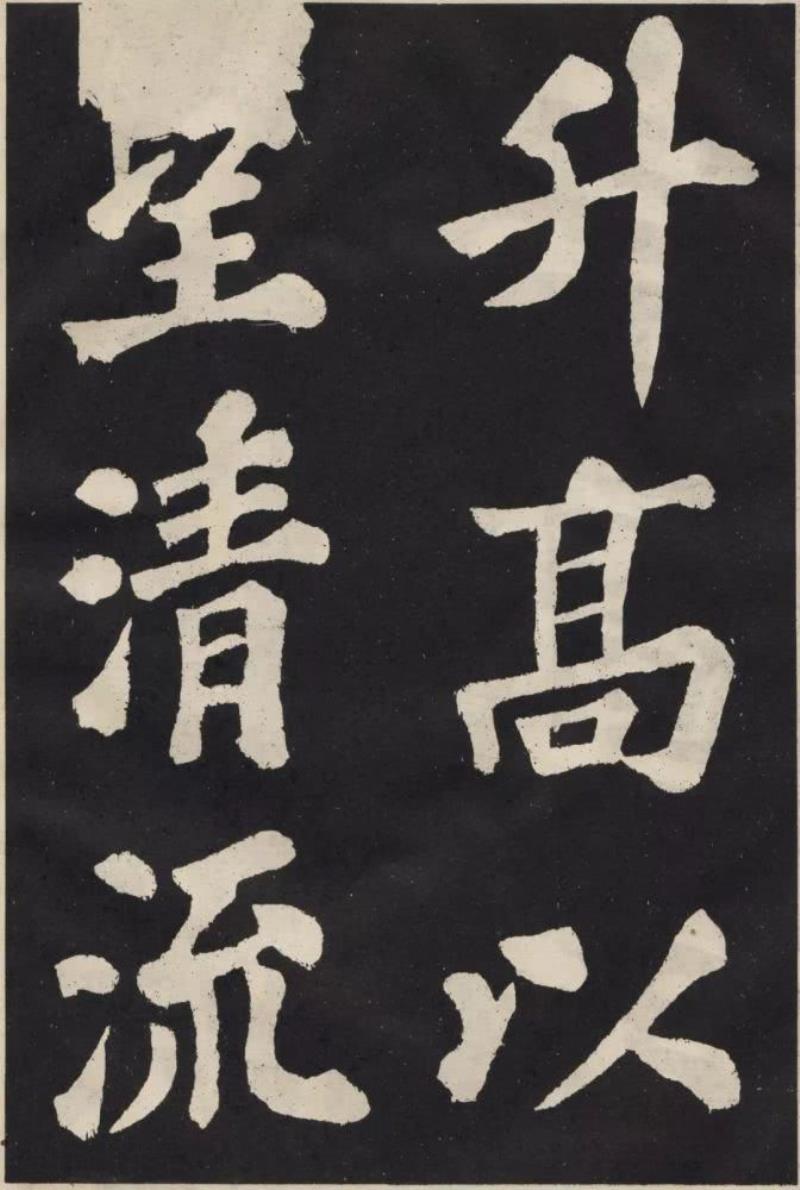 升高以
清流